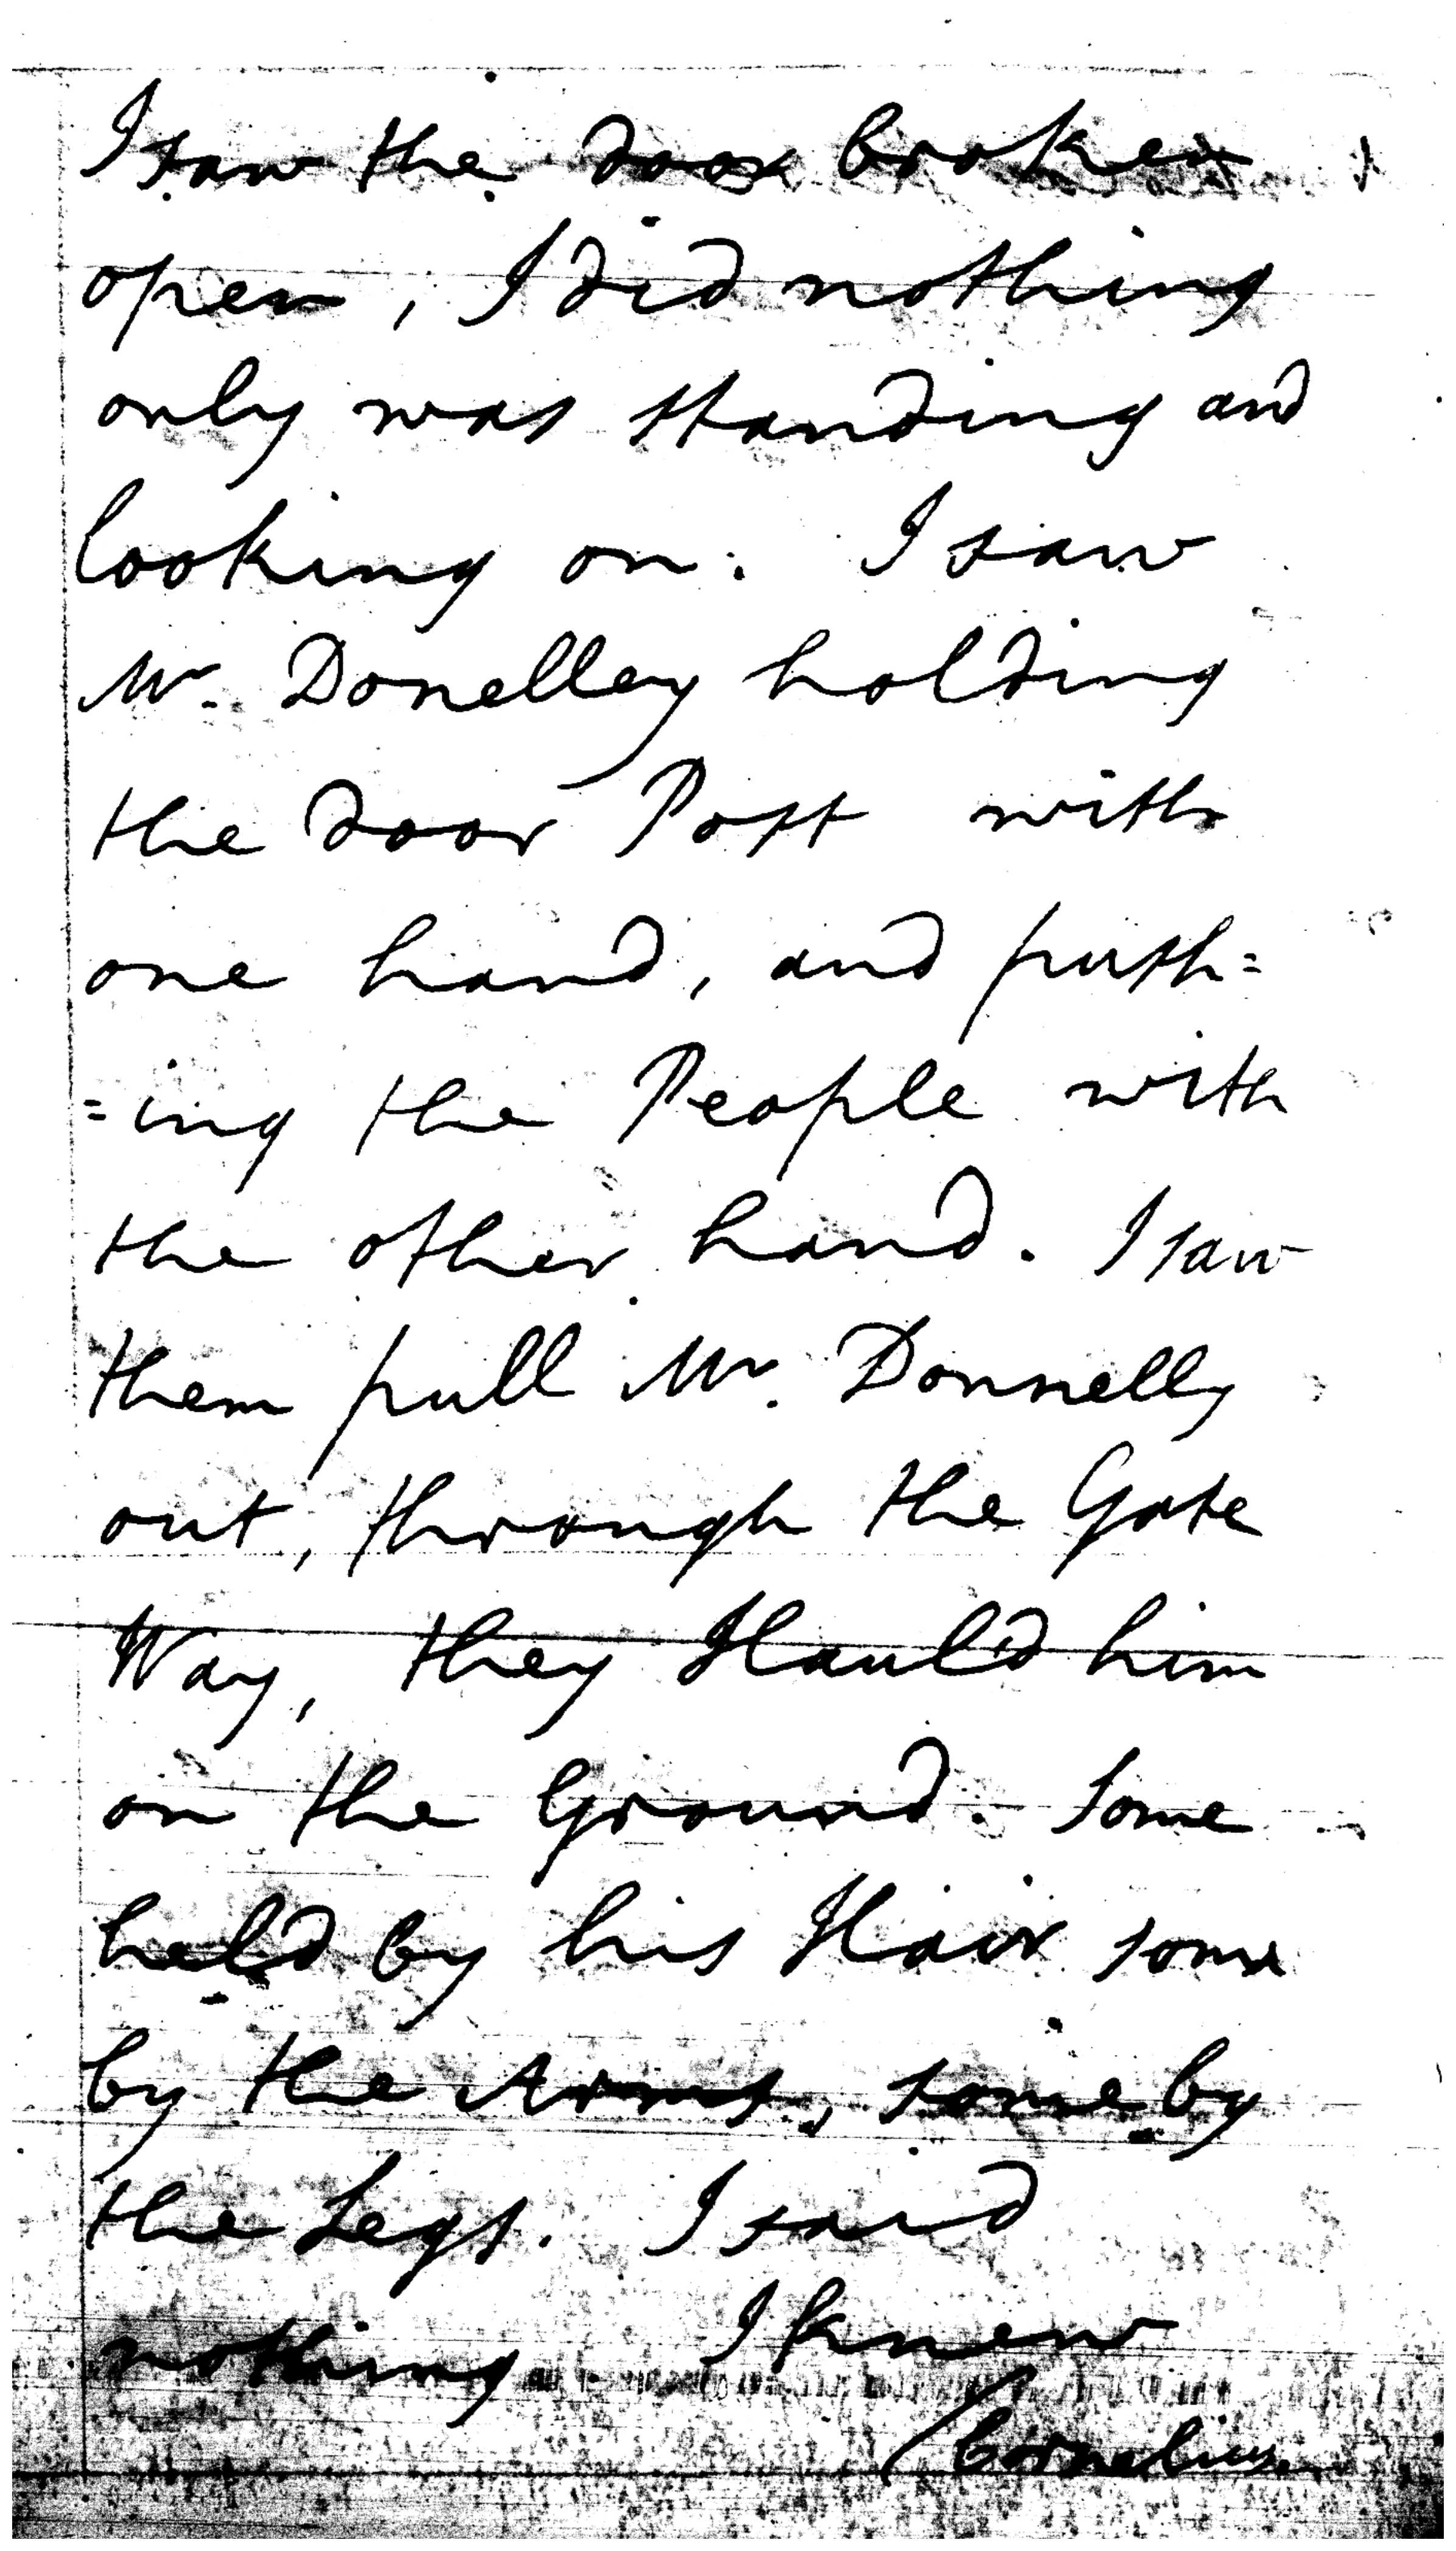 I saw the door broken
open, I did nothing
only was standing and
looking on. I saw
Mr. Donelley holding
the door Post with
one hand, and push=
=ing the People with
the other hand. I saw
them pull Mr. Donnelly
out, through the Gate
Way, they Hauld him
on the Ground. Some
held by his Hair some
by the Arms, some by
the Legs. I said
nothing I knew
(Cornelius